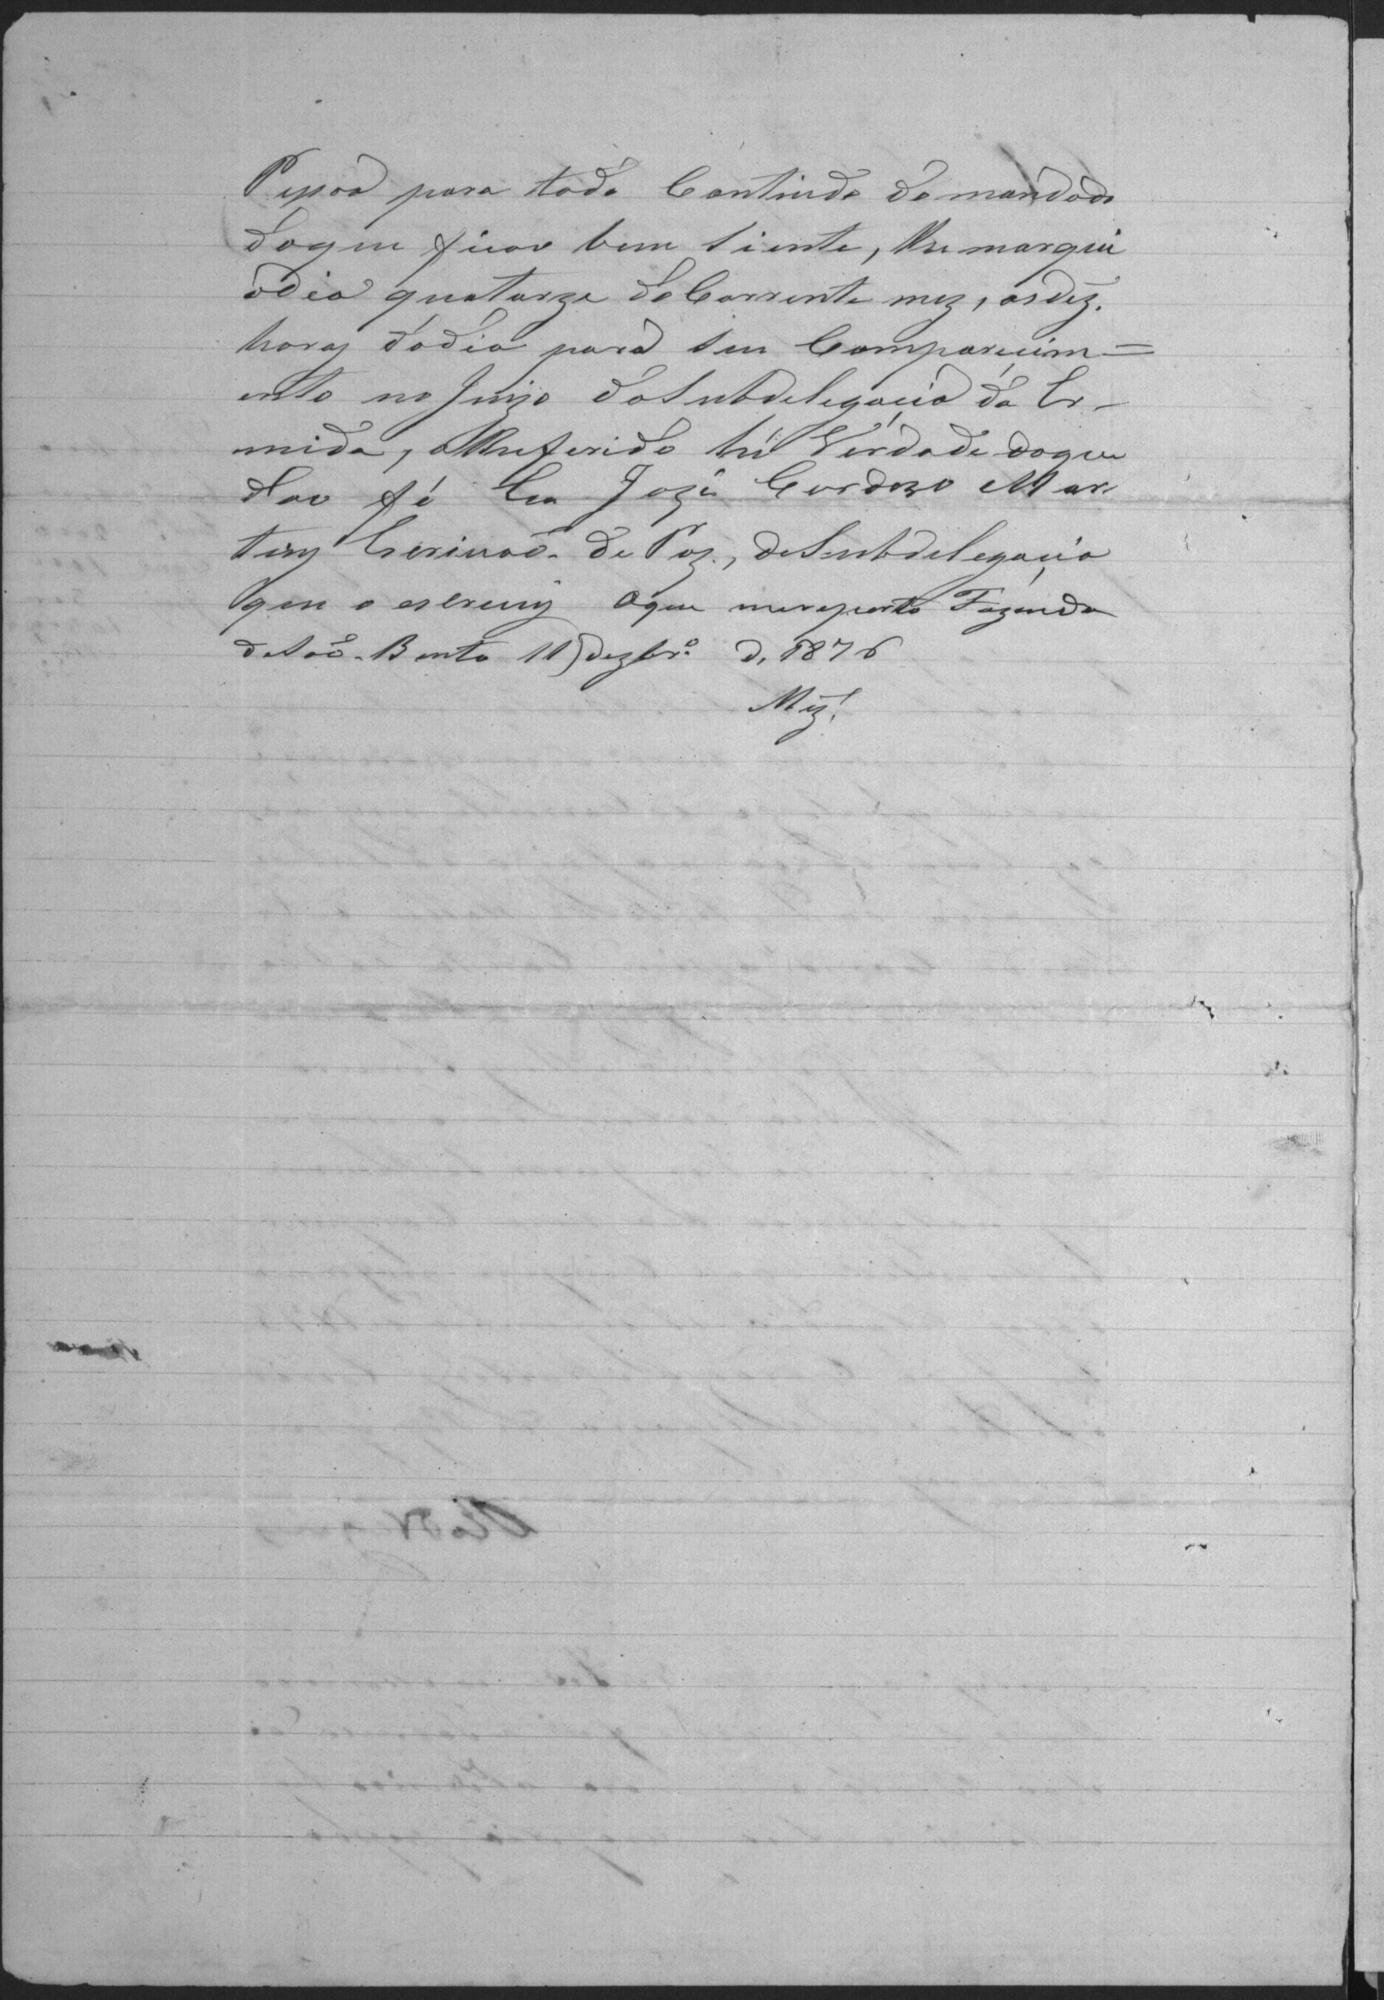 Pessoa para todo Contiudo do mandado
doque ficou bem siente, lhe marquei
odia quatorze do Corrente mez, as dez
horas dodia para seu Comparecim=
ento no Juizo da Subdelegacia da Er-
mida, o Referido hé Verdade doque
dou fé Eu José Cardozo Mar
tins Escrivaõ de Paz, de Subdelegacia
que o escrevy Oque me reporto Fazenda
de Saõ Bento 11 Dezbrº. d. 1876